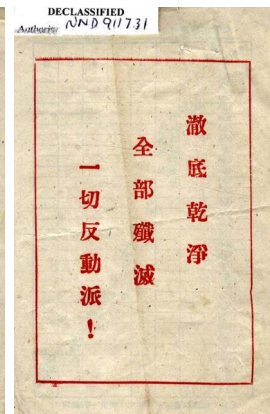 DECLASSIFIED
Authority NND 911731
澈底乾淨
全部殲滅
一切反動派！